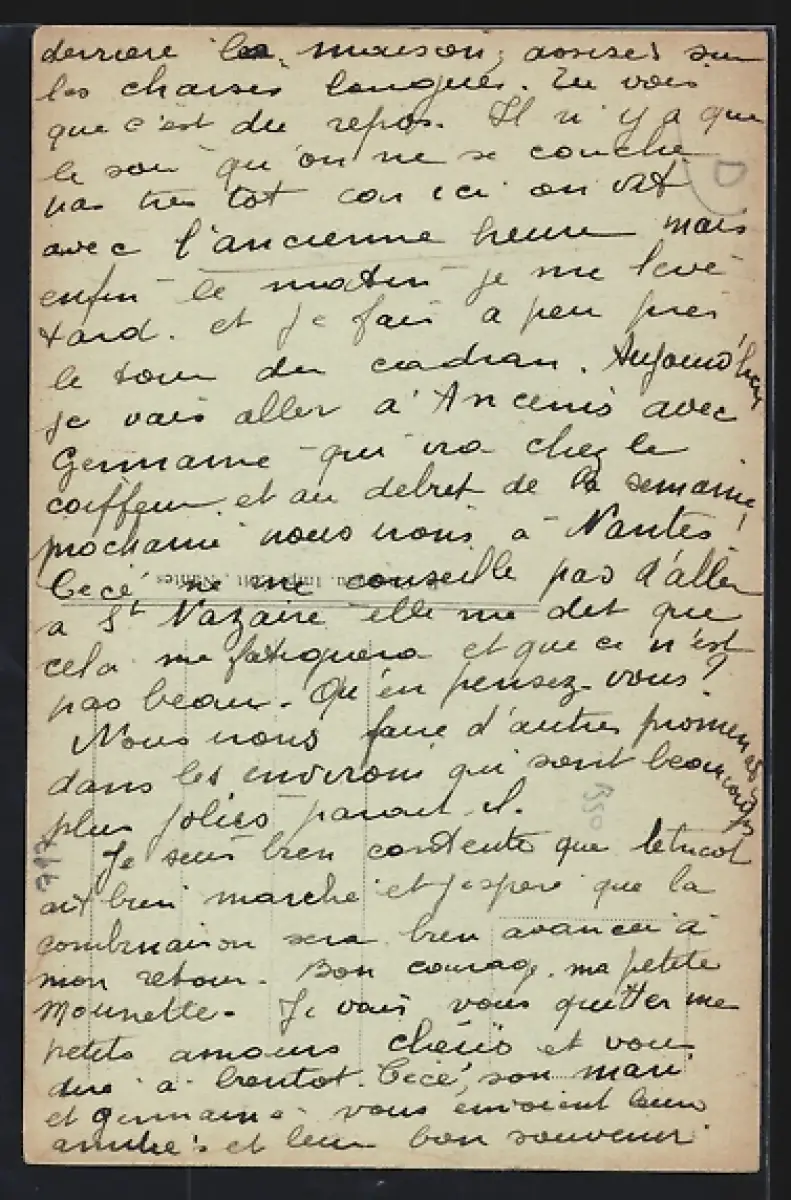 derriere la maison, assises sur
les chaises longues. Tu vois
que c'est du repos. Il n'y a que
le soir qu'on ne se couche
pas tres tot car ici on vit
avec l'ancienne heure mais
enfin le matin je me leve
tard. et je fais a peu pres
le tour du cadran. Aujourd'hui
je vais aller a Ancenis avec
Germaine qui va chez le
coiffeur et au debut de la semaine
prochaine nous irons à Nantes!
Cécé ne me conseille pas d'aller
a St Nazaire elle me dit que
cela me fatiguera et que ce n'est
pas beau. Qu'en pensez-vous?
Nous irons faire d'autres promenades
dans les environs qui sont beaucoup
plus jolies parait il.
Je suis bien contente que le tricot
ait bien marché et j'espere que la
combinaison sera bien avancée à
mon retour. Bon courage, ma petite
Mounette. Je vais vous quitter me
petits amours cheris et vous
dire a bientot. Cécé, son mari
et Germaine vous envoient leurs
amitiés et leur bon souvenir
D
B50
797